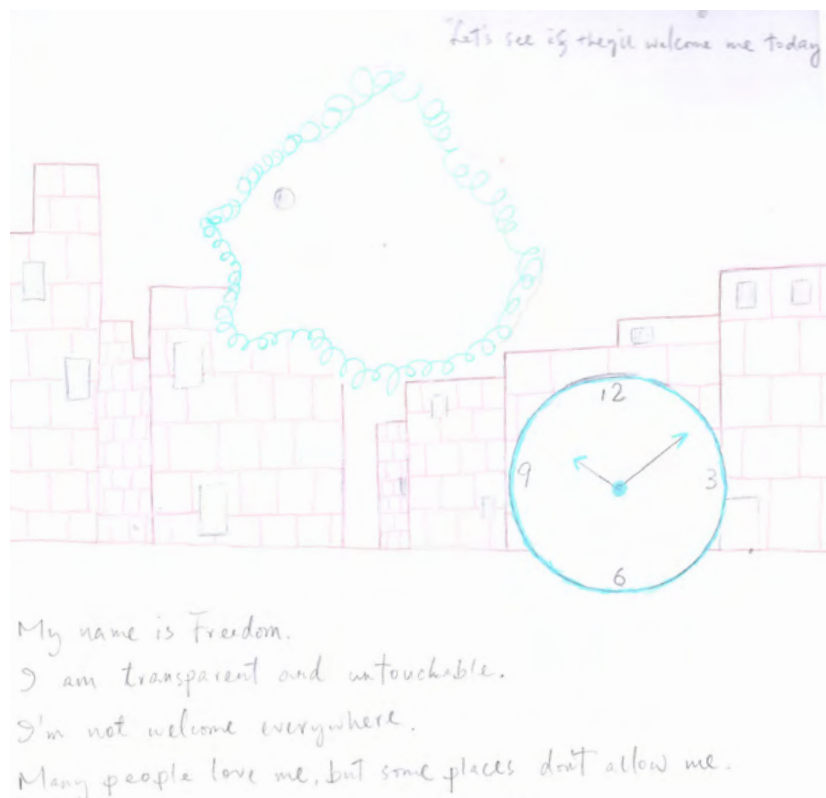 "Let's see if they'll welcome me today
12
9
3
6
My name is Freedom.
I am transparent and untouchable.
I'm not welcome everywhere.
Many people love me, but some places don't allow me.